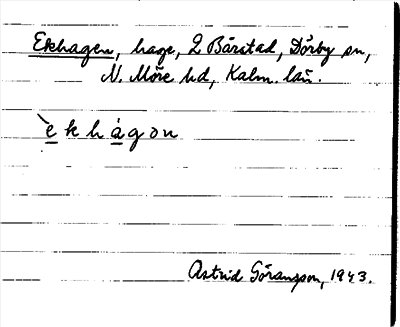 Ekhagen, hage, 2 Bårstad, Dörby sn,
N. Möre hd, Kalm. län.
̀ekhágon
Astrid Göransson, 1943.